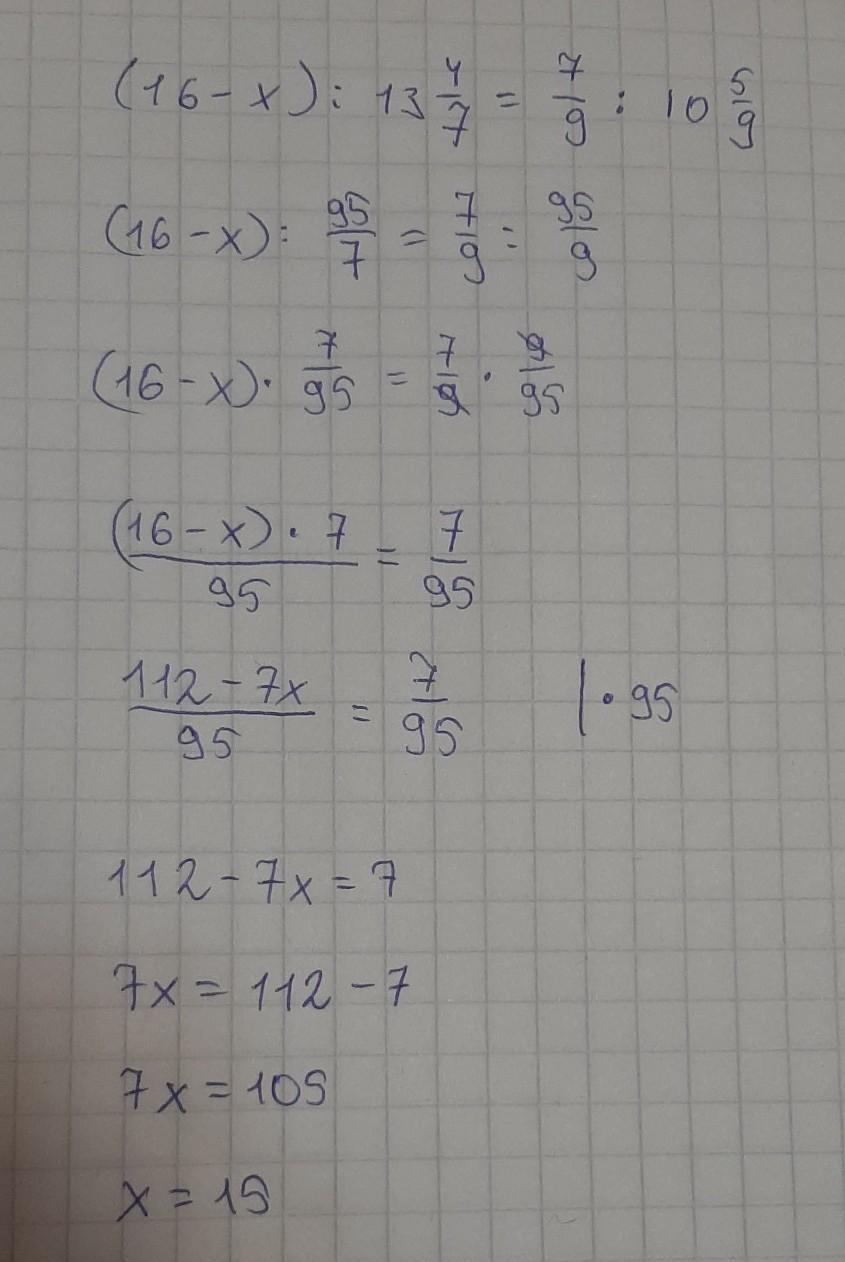 (16 - x) : 13 4/7 = 7/9 : 10 5/9
(16 - x) : 95/7 = 7/9 : 95/9
(16 - x) · 7/95 = 7/9 · 9/95
(16 - x) · 7/95 = 7/95
112 - 7x/95 = 7/95 | · 95
112 - 7x = 7
7x = 112 - 7
7x = 105
x = 15